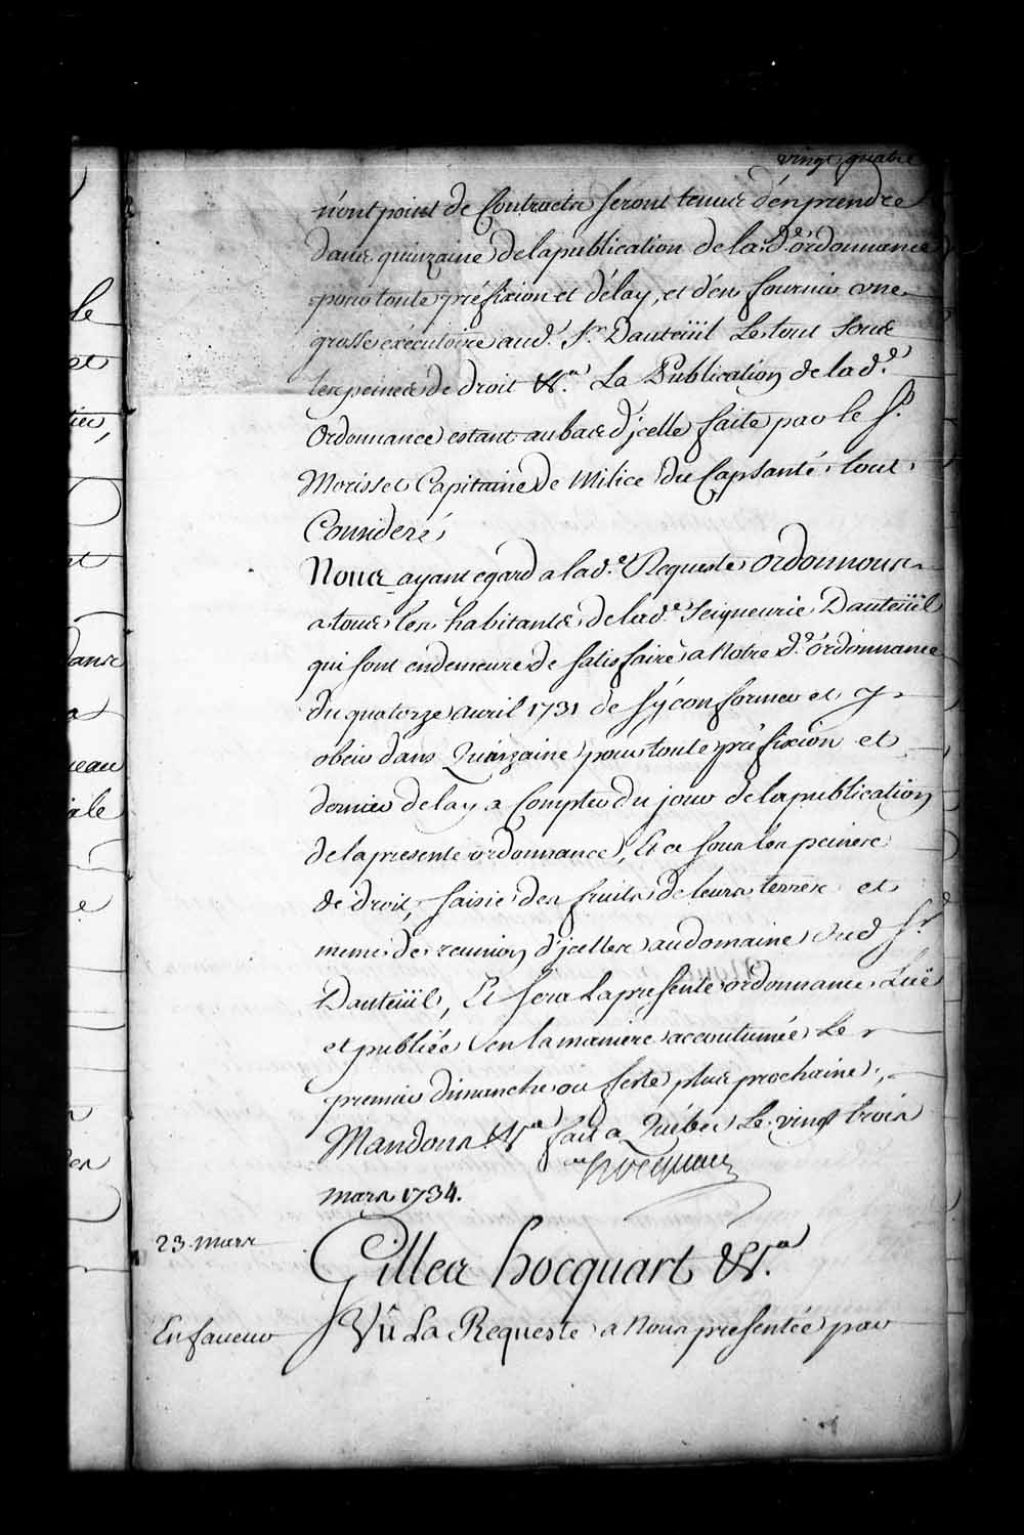 vingt quatre
n'ont point de Contracts seront tenus d'en prendre
dans quinzaine de la publication de la d.e ordonnance
pour toute préfixion et délay, et d'en fournir une
grosse exécutoire aud. Sr. Dauteüil le tout sous
les peines de droit &a. La Publication de lad.e
Ordonnance estant au bas d'jcelle faite par le Sr.
Morisset Capitaine de Milice du Capsanté, tout
Consideré,
Nous ayant egard a lad.e Requeste ordonnons
a tous les habitants de lad.e Seigneurie Dauteüil
qui sont en demeure de satisfaire a Notre d.e ordonnance
du quatorze avril 1731 de s'y conformer et y
obeir dans Quinzaine pour toute préfixion et
dernier delay a Compter du jour de la publication
de la presente ordonnance, Et ce sous les peines
de droit, saisie des fruits de leurs terres et
meme de reunion d'jcelles au domaine dud Sr.
Dauteüil, Et sera la presente ordonnance Lüe
et publiée en la maniere accoutumée le
premier dimanche ou feste plus prochaine,
Mandons &a fait a Québec le vingt trois
mars 1734.
Hocquart
23. mars
Gilles hocquart &a.
En faveur
Vû La Requeste a Nous presentée par